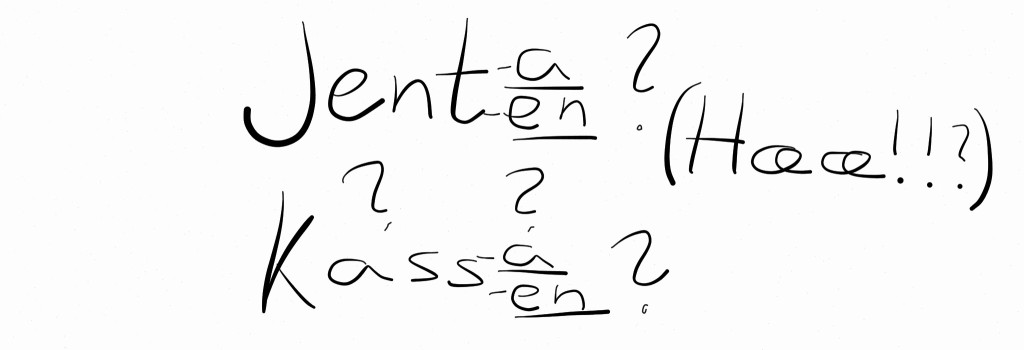 Jent -a / -en ?
(Hææ!!?)
? ?
Kass -a / -en ?